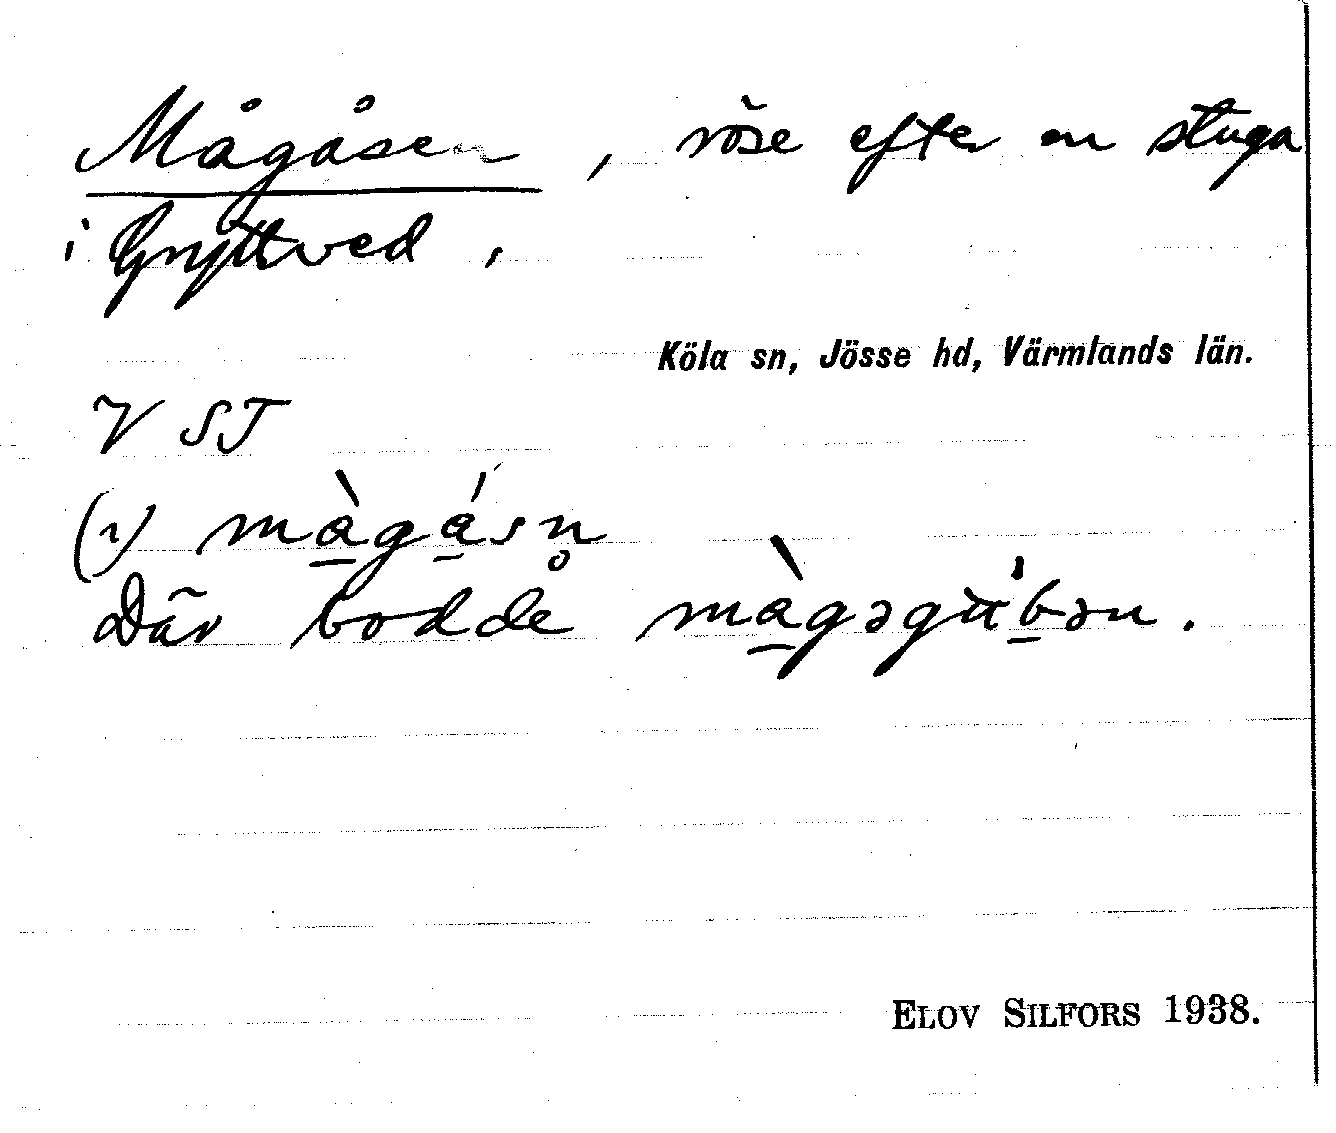 Mågåsen, röse efter en stuga
i Gryttved,
Köla sn, Jösse hd, Värmlands län.
V ST
(~) màgásn̥
Där bodde màgəgúbən.
ELOV SILFORS 1938.